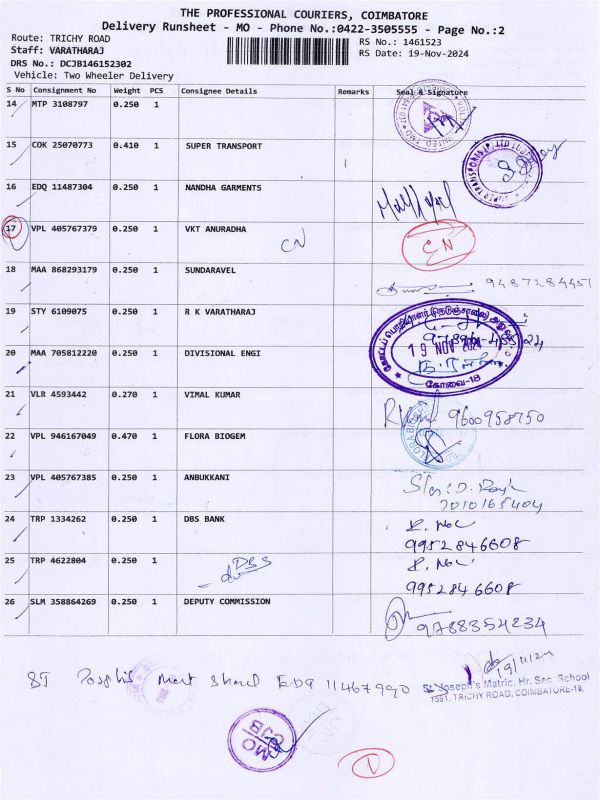 THE PROFESSIONAL COURIERS, COIMBATORE
Delivery Runsheet - MO - Phone No.:0422-3505555 - Page No.:2
Route: TRICHY ROAD
RS No.: 1461523
Staff: VARATHARAJ
RS Date: 19-Nov-2024
DRS No.: DCJB146152302
Vehicle: Two Wheeler Delivery
S No Consignment No Weight PCS Consignee Details Remarks Seal & Signature
14 MTP 3108797 0.250 1
15 COK 25070773 0.410 1 SUPER TRANSPORT
16 EDQ 11487304 0.250 1 NANDHA GARMENTS
17 VPL 405767379 0.250 1 VKT ANURADHA
CN CN
18 MAA 868293179 0.250 1 SUNDARAVEL
9487284451
19 STY 6109075 0.250 1 R K VARATHARAJ
20 MAA 705812220 0.250 1 DIVISIONAL ENGI
19 NOV 2024
கோவை-18
21 VLR 4593442 0.270 1 VIMAL KUMAR
9600958750
22 VPL 946167049 0.470 1 FLORA BIOGEM
23 VPL 405767385 0.250 1 ANBUKKANI
7010165404
24 TRP 1334262 0.250 1 DBS BANK
9952846608
25 TRP 4622804 0.250 1
DBS
9952846608
26 SLM 358864269 0.250 1 DEPUTY COMMISSION
9788354234
19/11/24
ST EDQ 11467990
St Joseph's Matric. Hr. Sec. School
1551, TRICHY ROAD, COIMBATORE-18.
MO
CJB
1